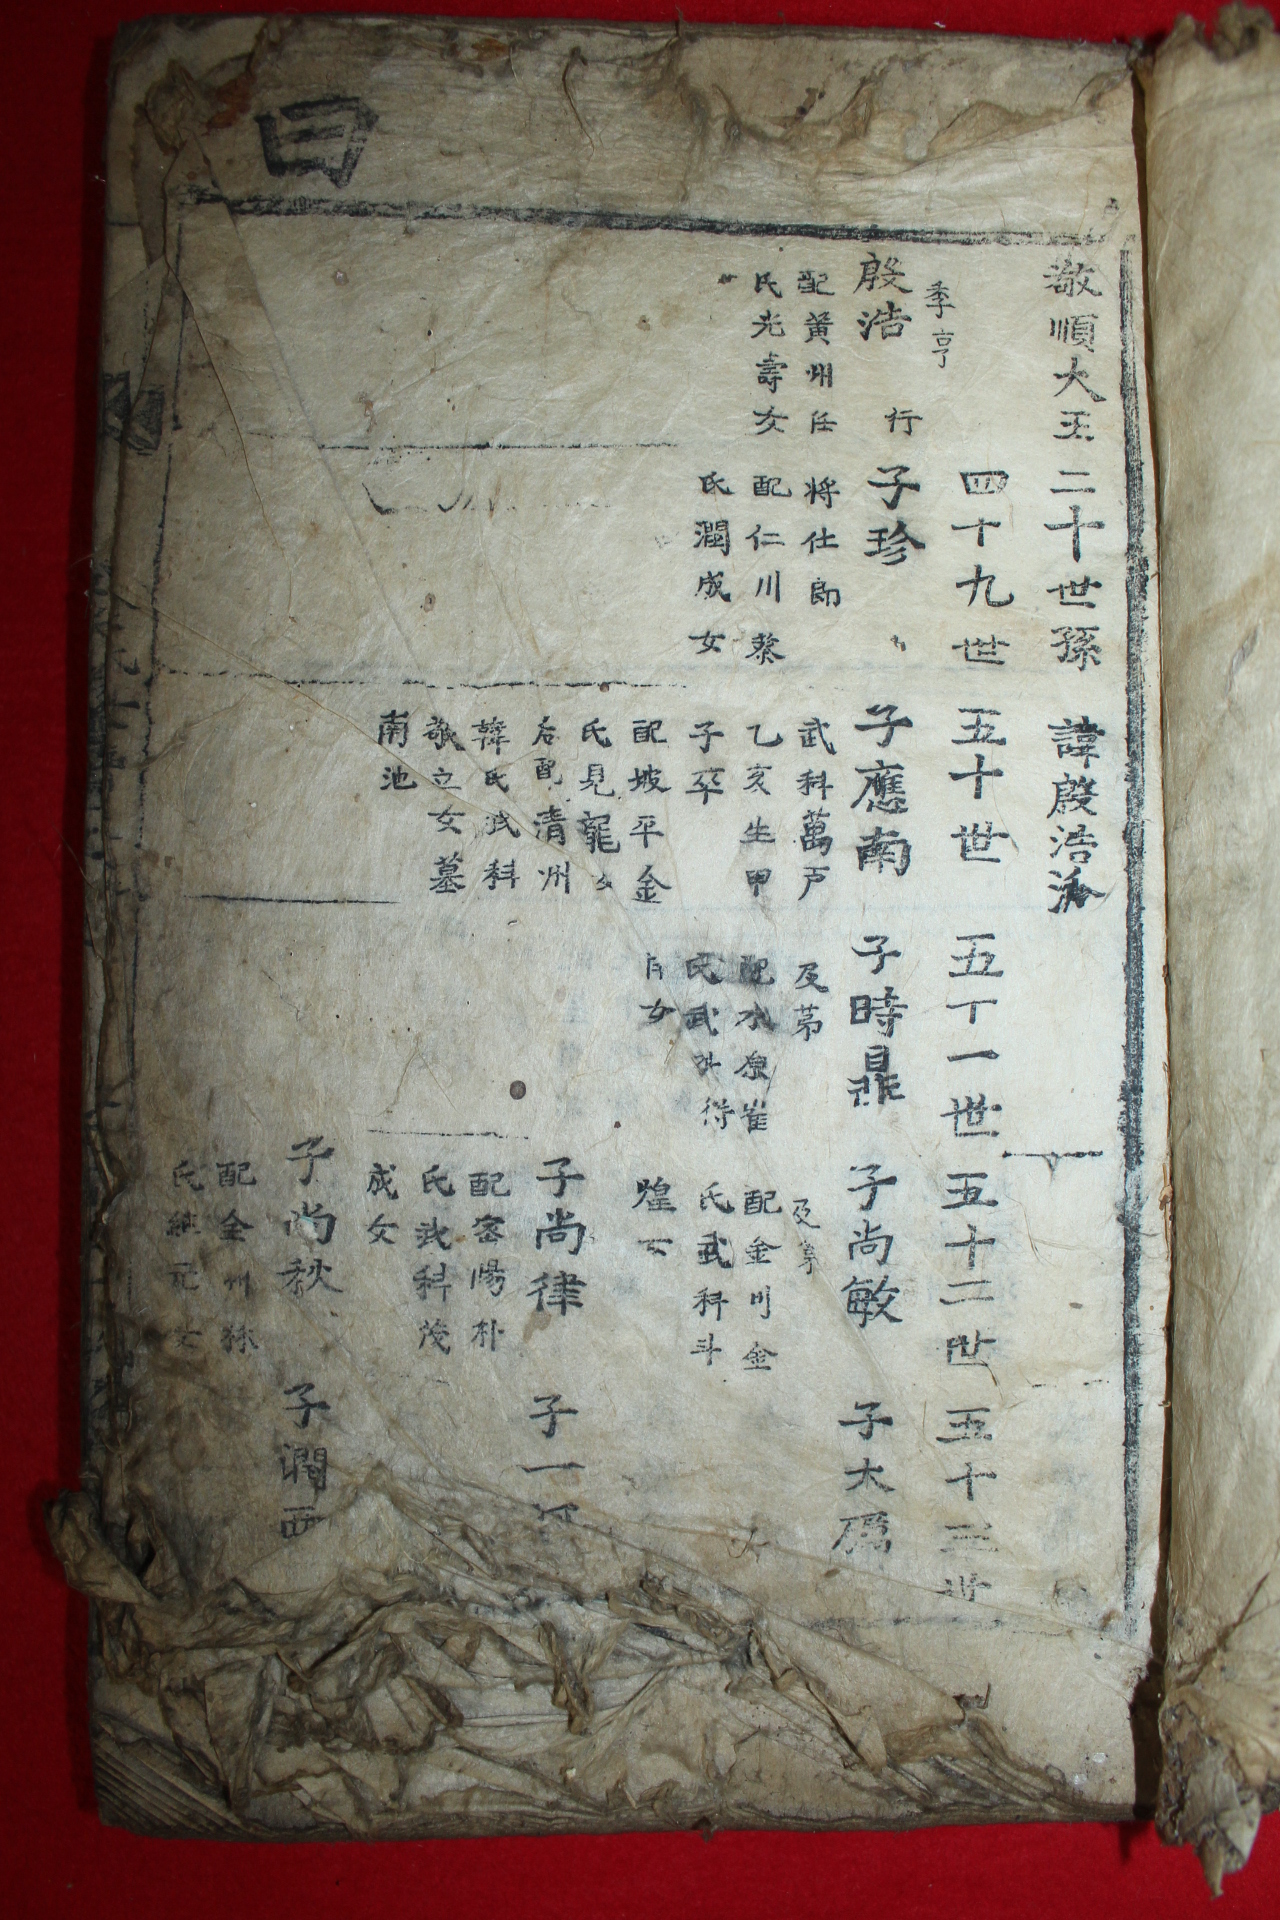 曰
敬順大王二十世孫 諱殷浩派
四十九世
五十世
五十一世
五十二世
五十三世
季亨
殷浩 行
配黃州任
氏光壽女
子珍
將仕郎
配仁川蔡
氏潤成女
子應南
武科萬戶
乙亥生甲
子卒
配坡平金
氏見龍女
后配清州
韓氏武科
敬立女墓
南池
子時鼎
及苐
配水原崔
氏武科得
女
子尚敏
及苐
配金川金
氏武科斗
煌女
子尚律
配密陽朴
氏武科茂
成女
子尚秋
配全州
氏継元女
子大
子一
子潤西